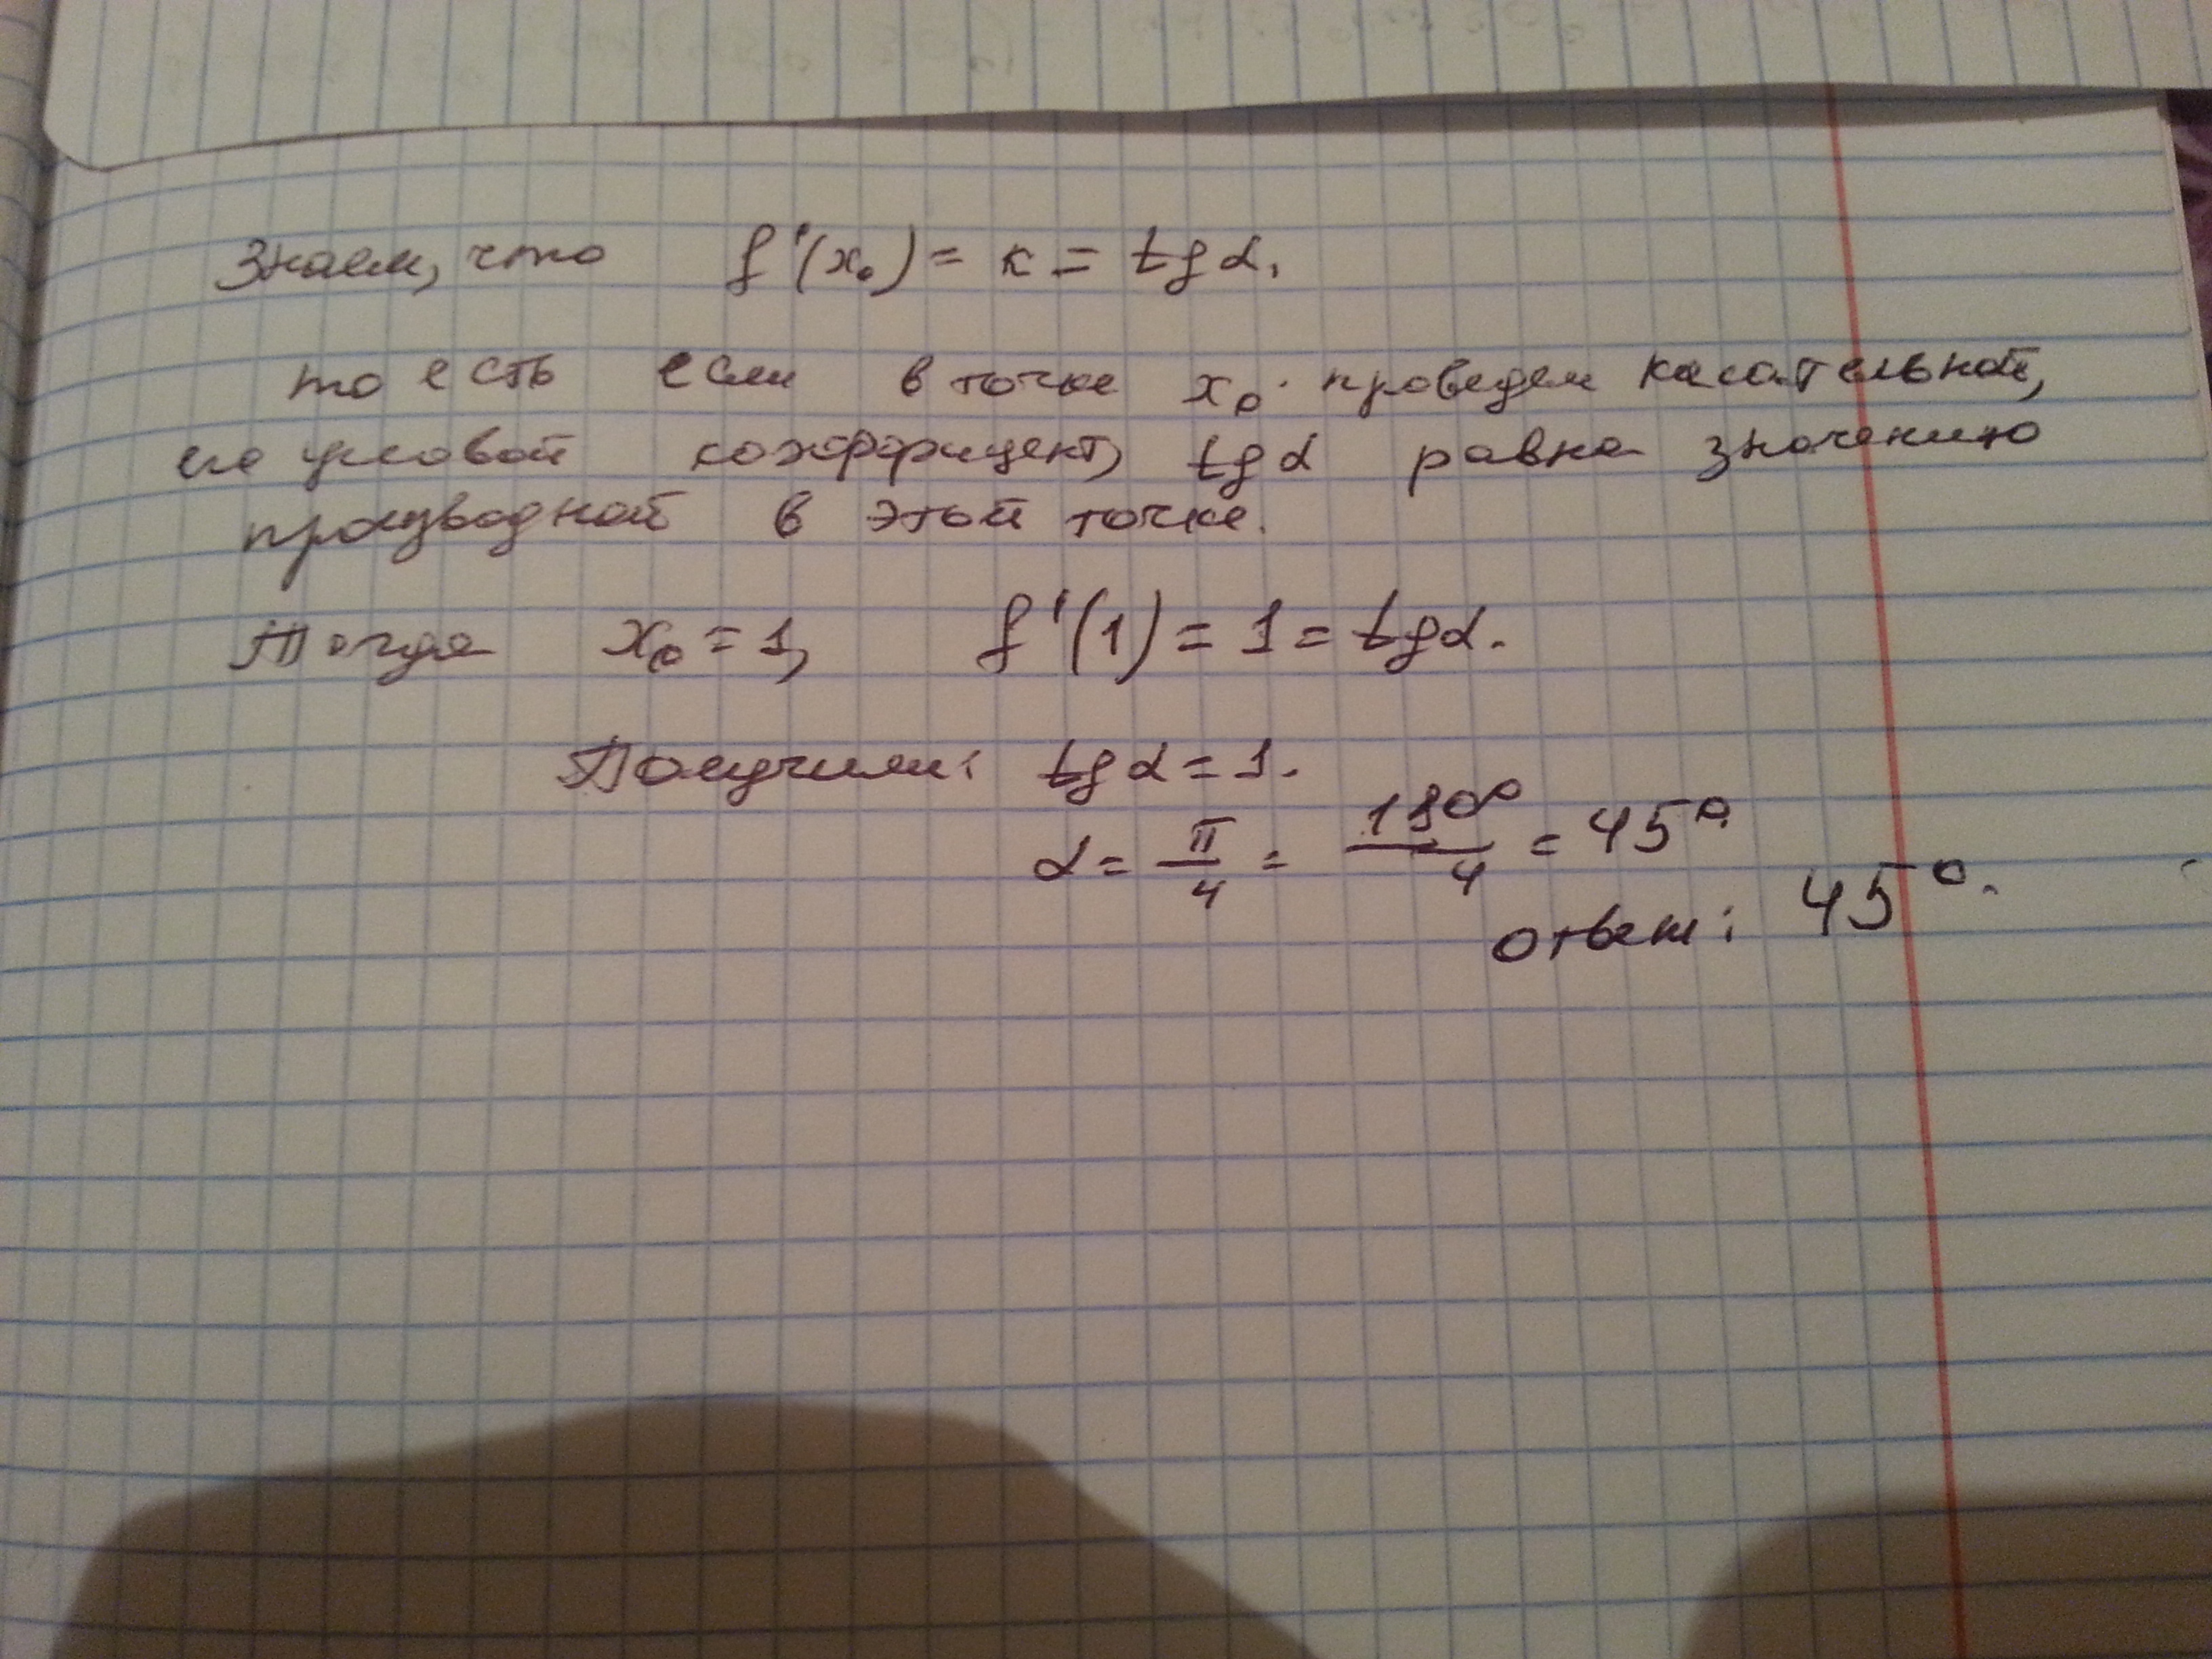 Знаем, что f'(x₀) = к = tg α,
то есть если в точке x₀ проведем касательной,
его угловой коэффициент, tg α равна значению
производной в этой точке.
Тогда x₀ = 1, f'(1) = 1 = tg α.
Получили: tg α = 1.
α = π/4 = 180°/4 = 45°.
Ответ: 45°.